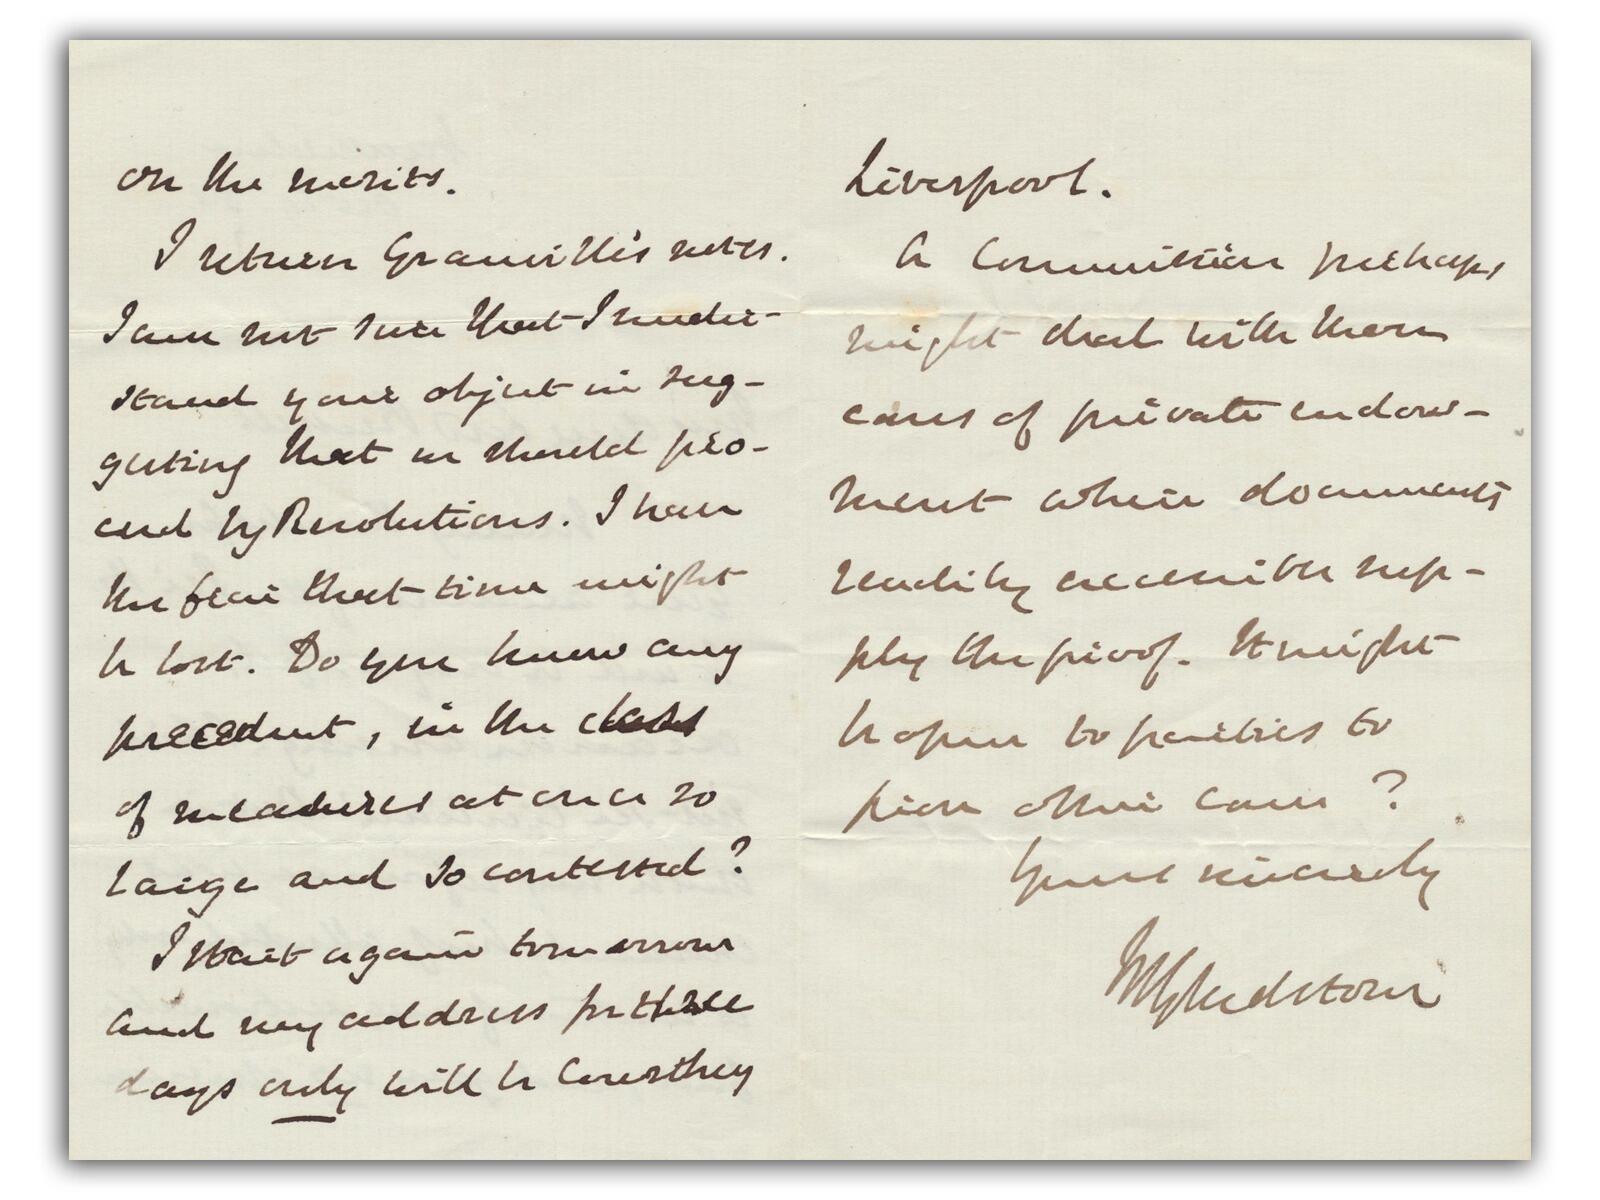 on the merits.
I return Granville's notes.
I am not sure that I under-
stand your object in sug-
gesting that we should pro-
ceed by Resolutions. I have
the fear that time might
be lost. Do you know any
precedent, in the class
of measures at once so
large and so contested?
I start again tomorrow
and my address for three
days only will be Courthey
Liverpool.
A Commission perhaps
might deal with them
cases of private endow-
ment where documents
readily accessible sup-
ply the proof. It might
be open to parties to
other cases?
Yours sincerely
WGladstone